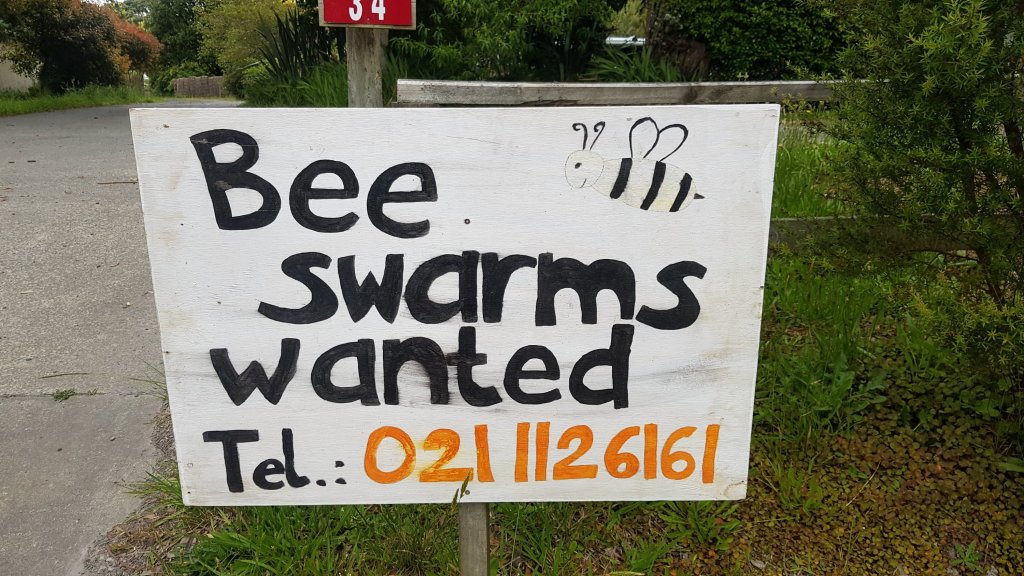 34
Bee
swarms
wanted
Tel.: 021 1126161